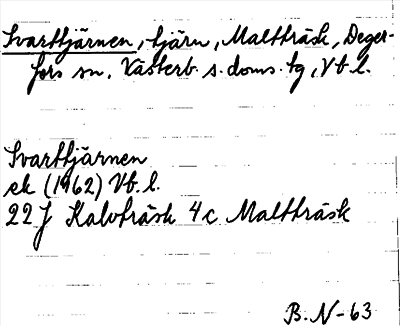 Svarttjärnen, tjärn, Maltträsk, Deger-
fors sn, Västerb. s. doms. tg, Vb. l.
Svarttjärnen
ek (1962) Vb. l.
22 J Kalvträsk 4 c Maltträsk
B. N-63